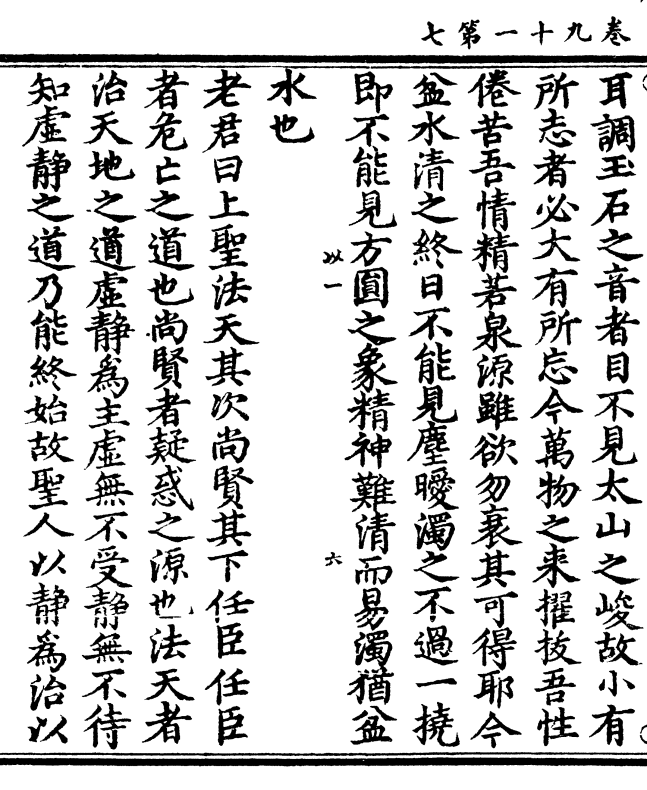 卷九十一第七
耳調玉石之音者目不見太山之峻故小有
所志者必大有所忘今萬物之来擢拔吾性
倦苦吾情精若泉源雖欲勿衰其可得耶今
盆水清之終日不能見塵曖濁之不過一撓
即不能見方圓之象精神難清而易濁猶盆
以一
六
水也
老君曰上聖法天其次尚賢其下任臣任臣
者危亡之道也尚賢者疑惑之源也法天者
治天地之道虛静為主虛無不受静無不待
知虛静之道乃能終始故聖人以静為治以